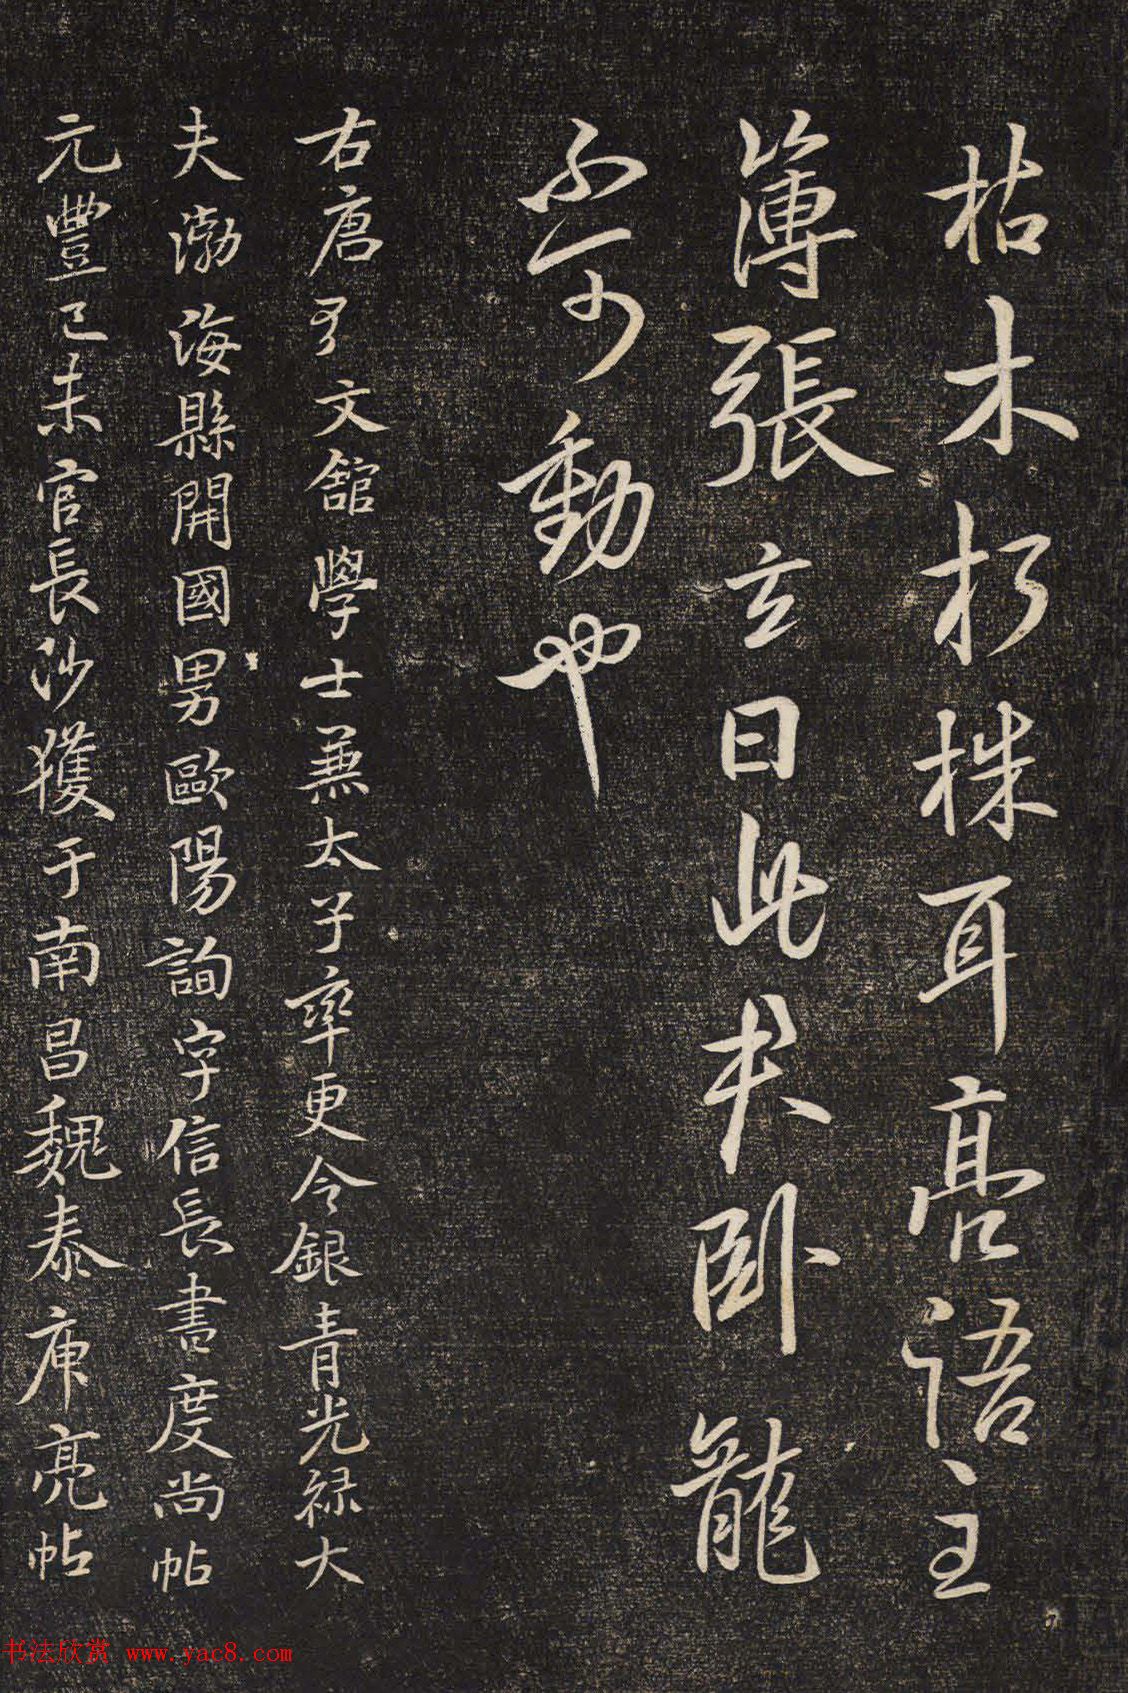 枯木朽株耳亮語主
簿張玄曰此夫卧龍
不可動也
右唐弘文館學士兼太子率更令銀青光禄大
夫渤海縣開國男歐陽詢字信長書度尚帖
元豐己未官長沙獲于南昌魏泰庾亮帖
书法欣赏 www.yac8.com